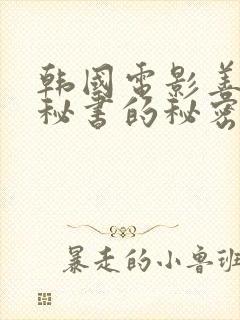 韩国电影善
秘书的秘密
暴走的小鲁班